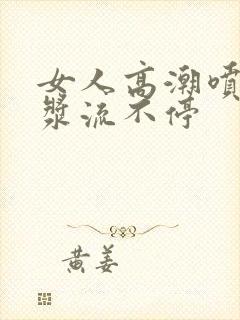 女人高潮喷
浆流不停
黄姜